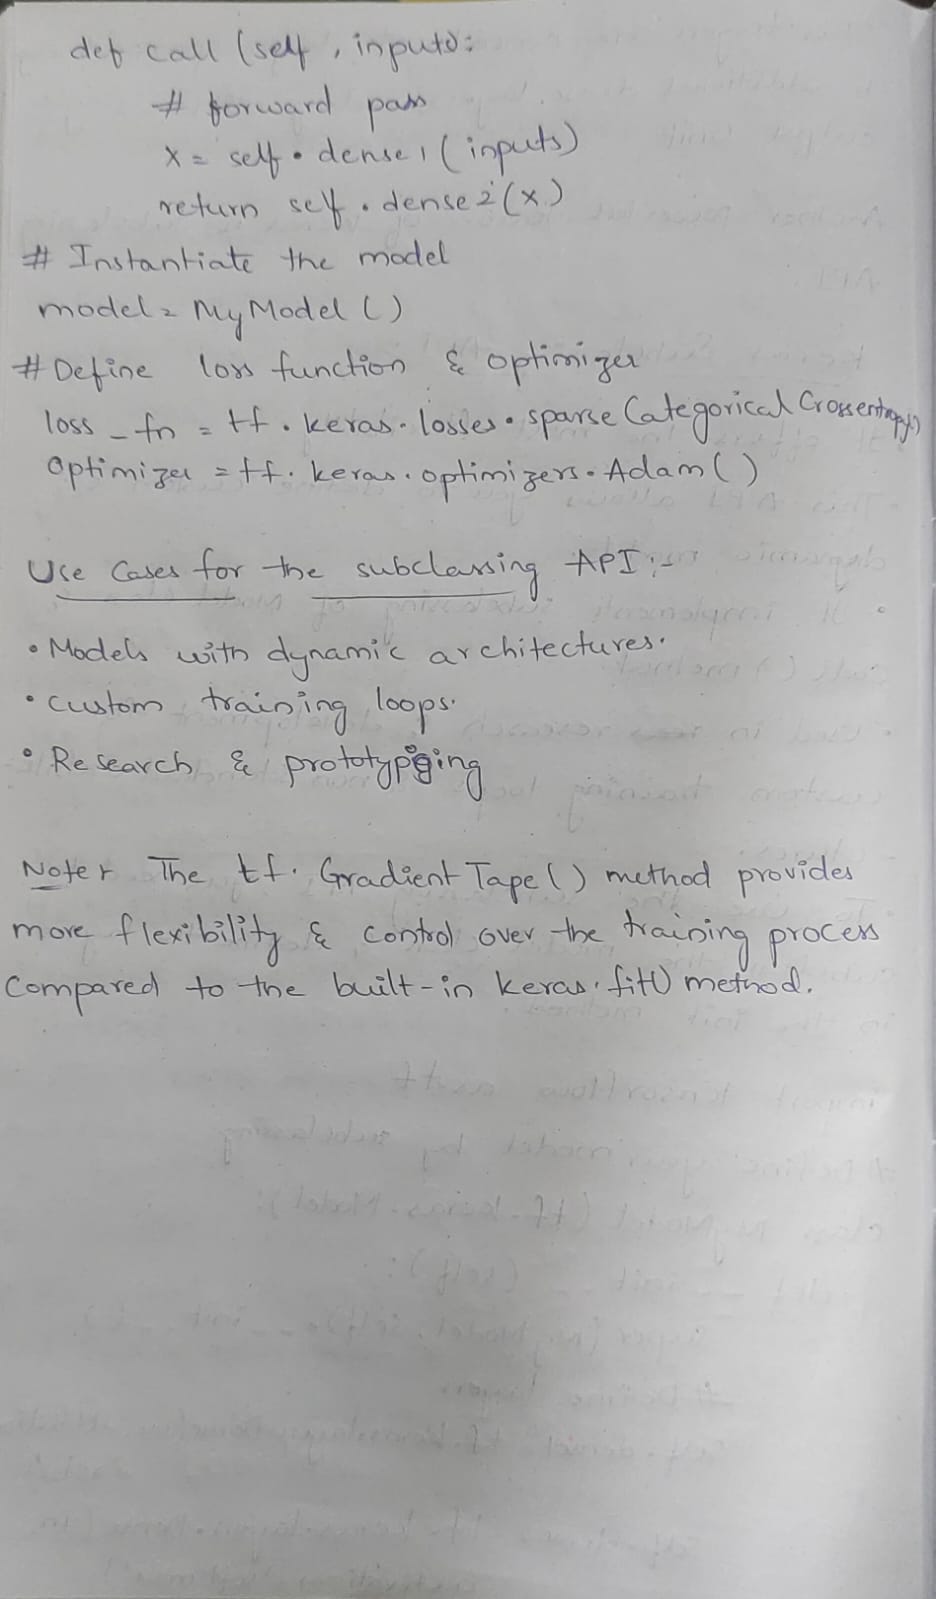 def call (self, inputs):
# forward pass
x = self.dense1(inputs)
return self.dense2(x)
# Instantiate the model
model = MyModel()
# Define loss function & optimizer
loss_fn = tf.keras.losses.sparse Categorical Crossentropy()
Optimizer = tf.keras.optimizers.Adam()
Use Cases for the subclassing API:-
• Models with dynamic architectures.
• custom training loops.
• Research & prototyping
Note:- The tf.GradientTape() method provides
more flexibility & control over the training process
Compared to the built-in keras.fit() method.